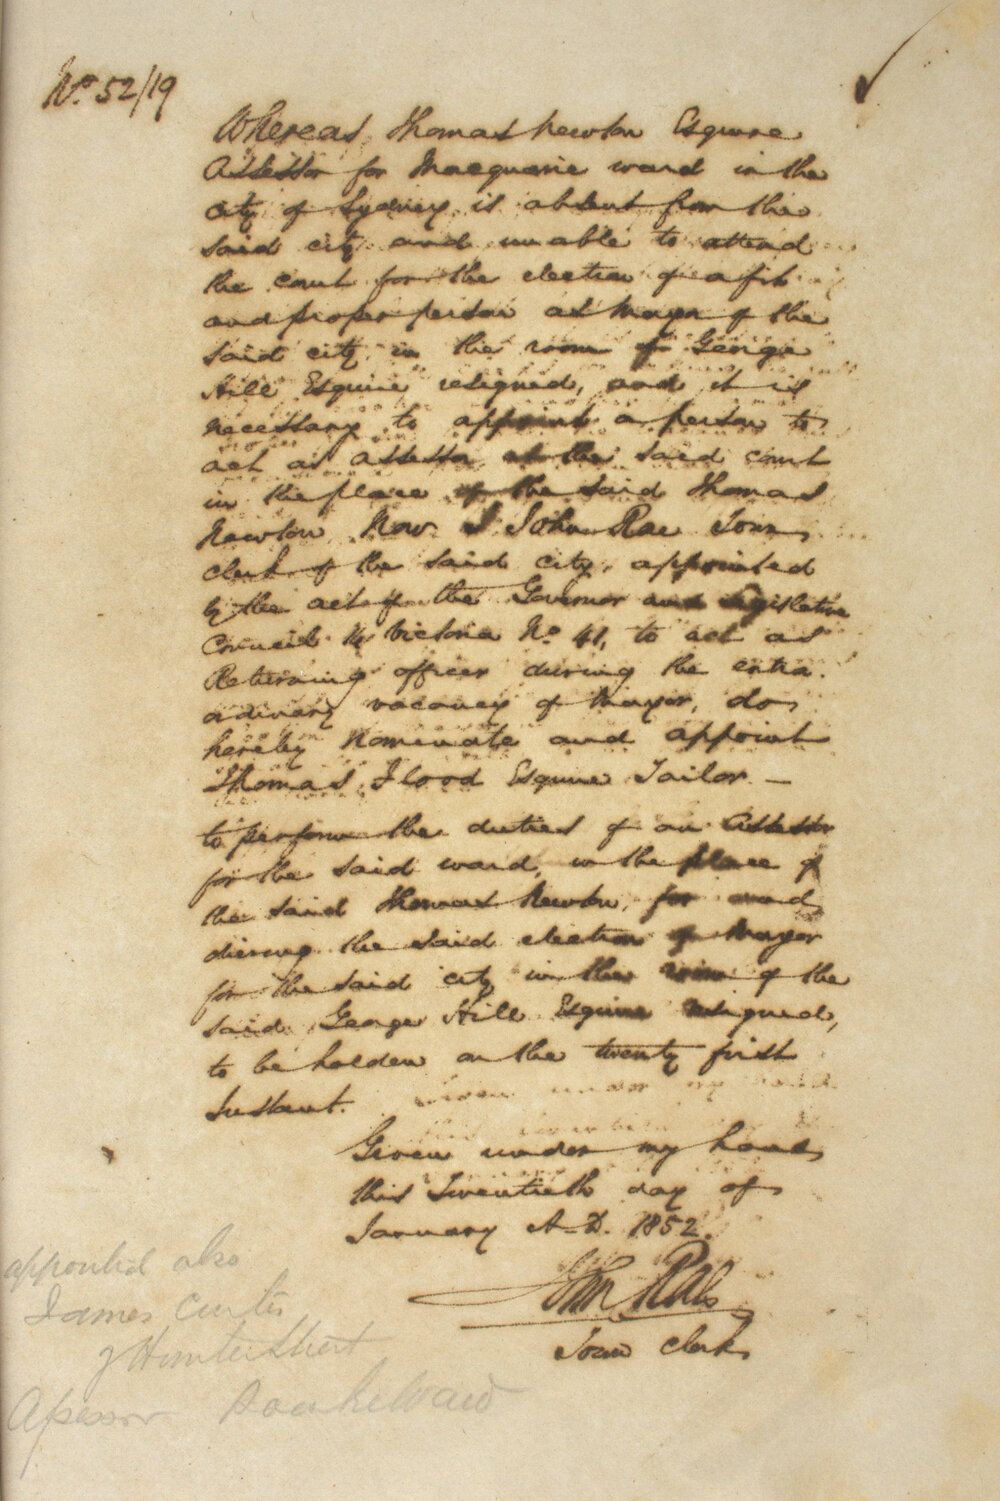 No. 52/19
Whereas Thomas Newton Esquire
Assessor for Macquarie ward in the
city of Sydney is absent from the
said city and unable to attend
the court for the election of a fit
and proper person as Mayor of the
said city in the room of George
Hill Esquire resigned, and it is
necessary to appoint a person to
act as assessor at the said court
in the place of the said Thomas
Newton Now I John Rae Town
clerk of the said city, appointed
by the act of the Governor and Legislative
Council 14 Victoria No. 41, to act as
Returning officer during the extra
ordinary vacancy of Mayor, do
hereby nominate and appoint
Thomas Flood Esquire Tailor —
to perform the duties of an Assessor
for the said ward, in the place of
the said Thomas Newton, for and
during the said election of Mayor
for the said city in the room of the
said George Hill Esquire resigned,
to be holden on the twenty first
Instant.
Given under my hand
this Twentieth day of
January A.D. 1852.
John Rae
Town Clerk
appointed also
James Curtis
of Hunter Street
Assessor Bourke Ward